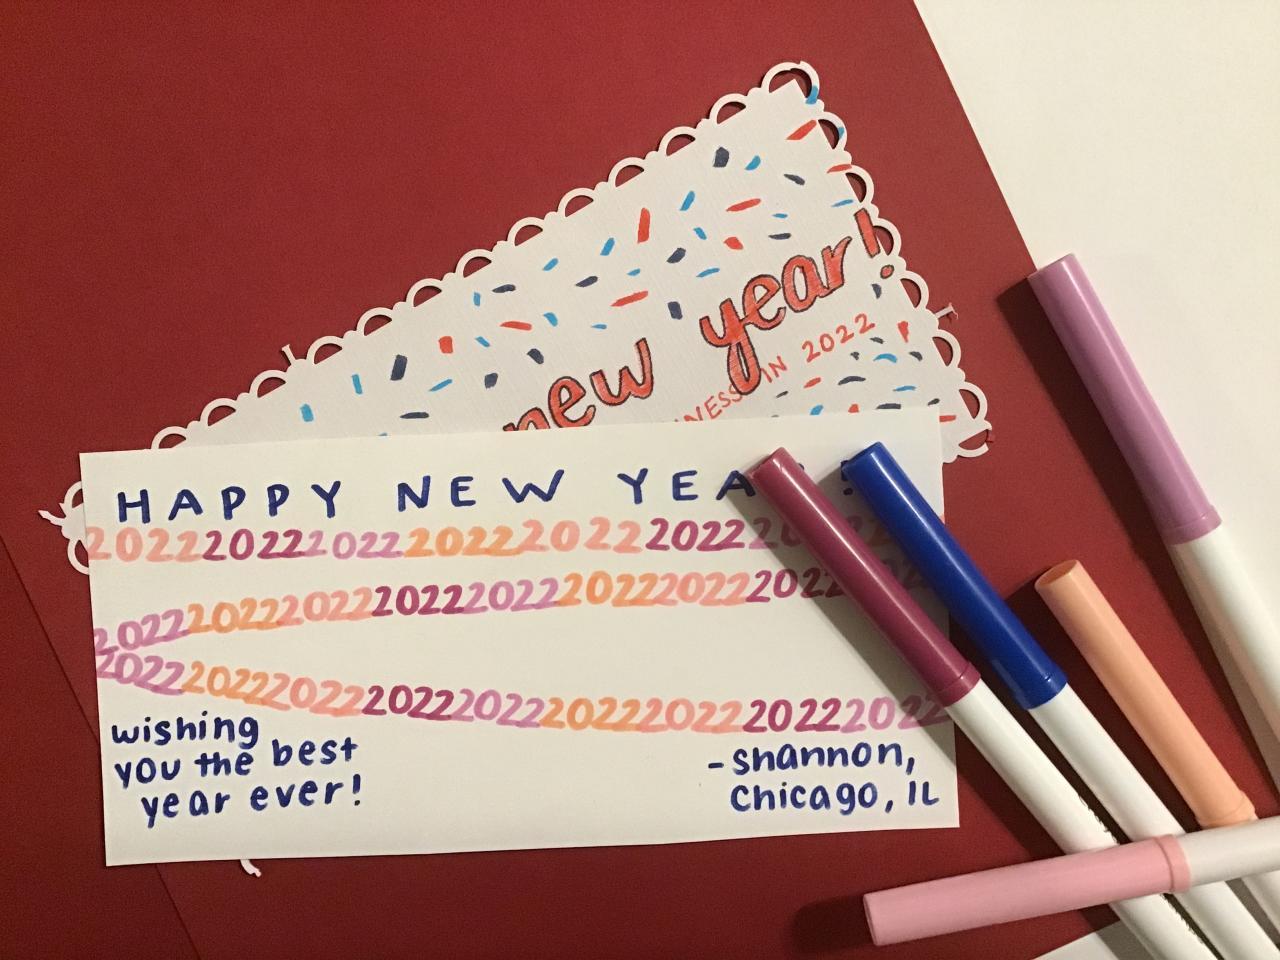 new year!
IN 2022
HAPPY NEW YEAR!
2022202220222022202220222022
202220222022202220222022202220222022
202220222022202220222022202220222022
wishing
you the best
year ever!
-shannon,
Chicago, IL